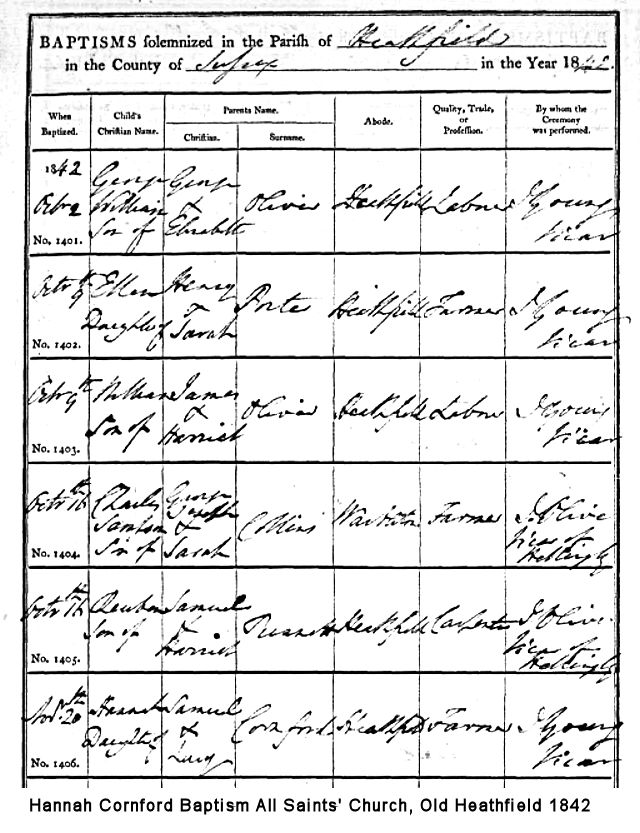 BAPTISMS solemnized in the Parish of Heathfield
in the County of Sussex in the Year 1842.
When Baptized. Child's Christian Name. Parents Name. Abode. Quality, Trade, or Profession. By whom the Ceremony was performed.
Christian. Surname.
1842
Octbr 2
No. 1401.
George
William
Son of
George
&
Elizabeth
Olivier
Heathfield
Labourer
J Young
Vicar
Octr 9th
No. 1402.
Ellen
Daughter of
Henry
&
Sarah
Porter
Heathfield
Farmer
J Young
Vicar
Octbr 9th
No. 1403.
William
Son of
James
&
Harriet
Olivier
Heathfield
Labourer
J Young
Vicar
Octr 16th
No. 1404.
Charles
Sampson
Son of
George
Joseph
&
Sarah
Collins
Warbleton
Farmer
J Olive
Vicar of
Hellingly
Octr 16th
No. 1405.
Reuben
Son of
Samuel
&
Harriet
Heathfield
Carpenter
J Olive
Vicar of
Hellingly
Novr 20th
No. 1406.
Hannah
Daughter of
Samuel
&
Lucy
Cornford
Heathfield
Farmer
J Young
Vicar
Hannah Cornford Baptism All Saints' Church, Old Heathfield 1842